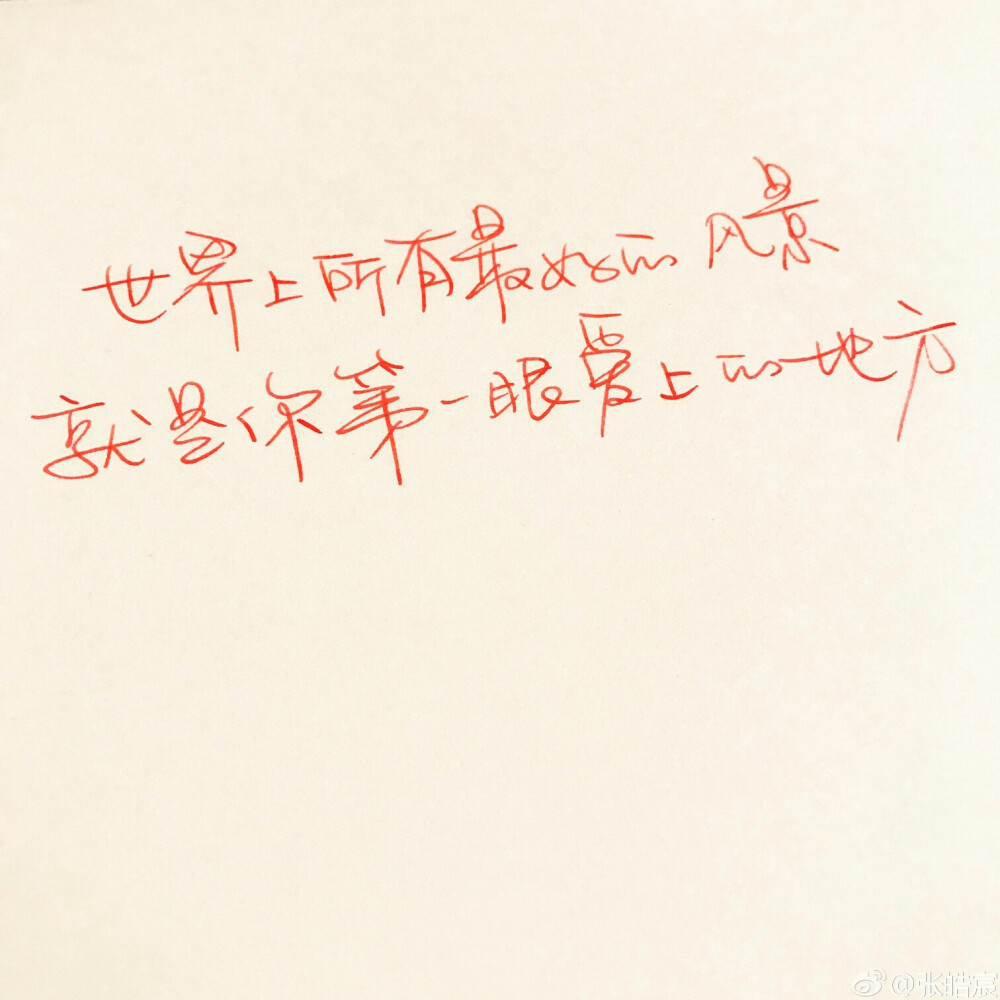 世界上所有最好的风景
就是你第一眼爱上的地方
@张皓宸